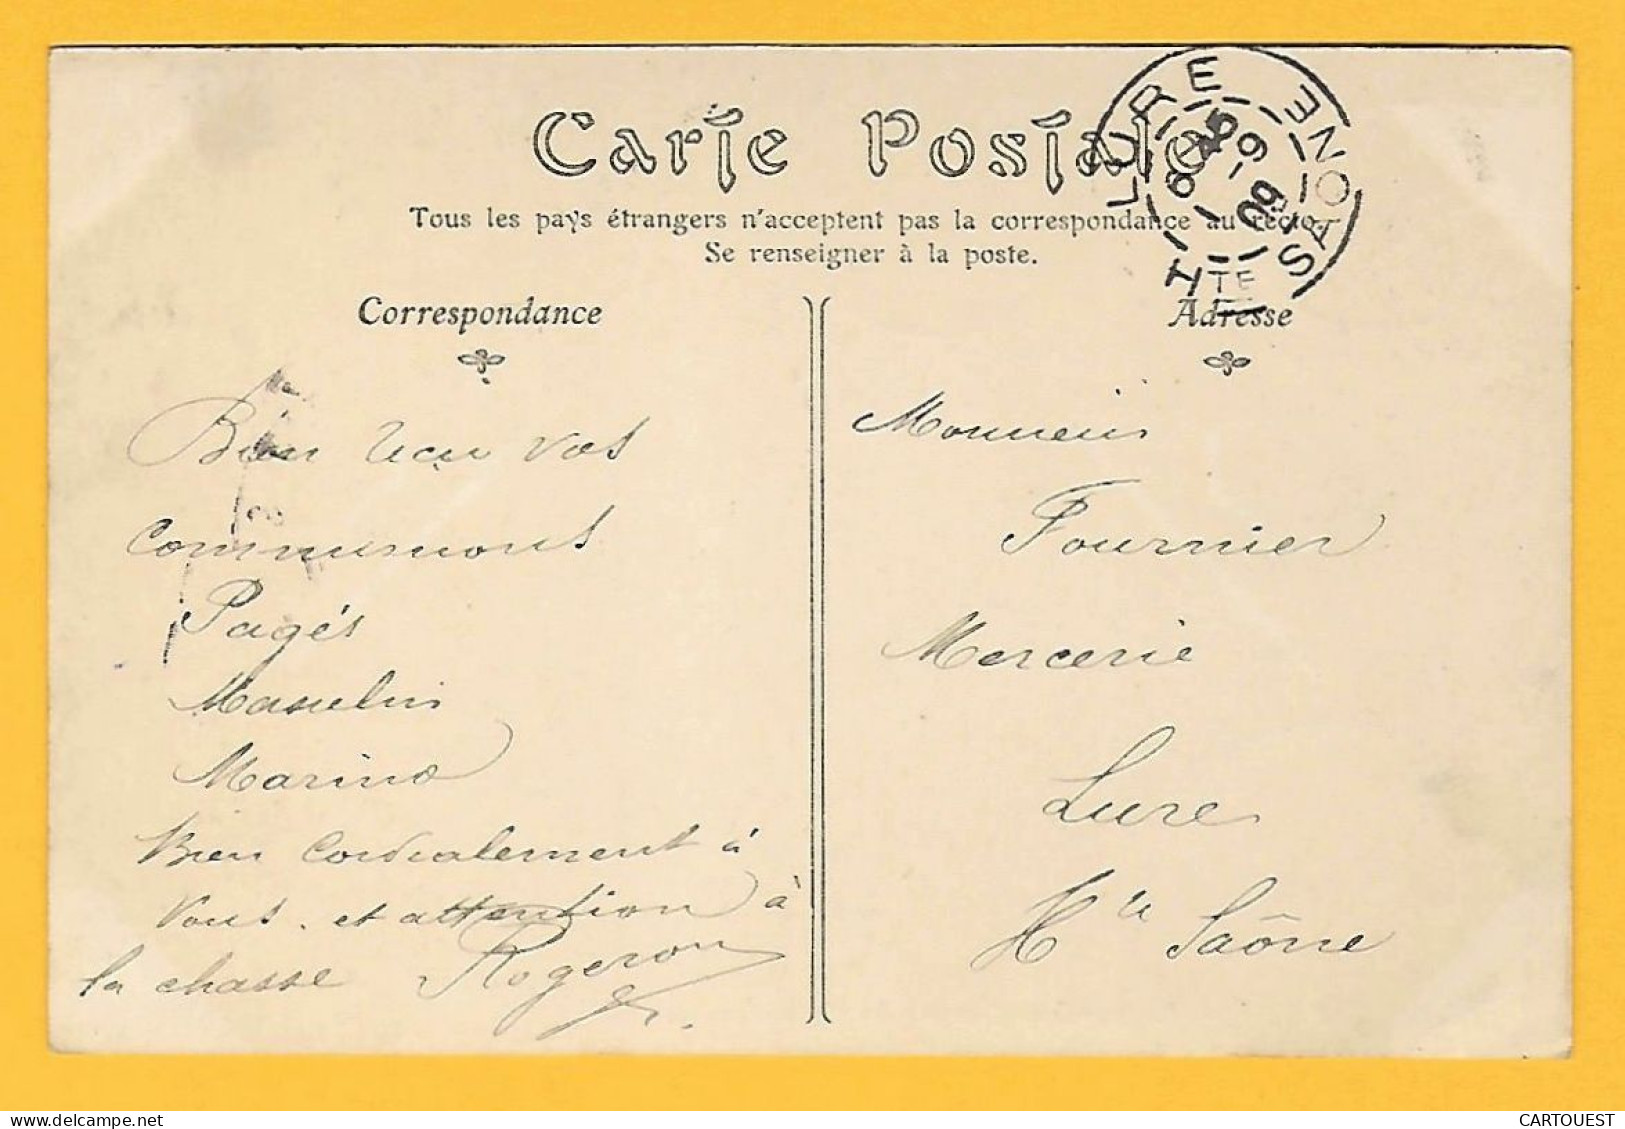 Carte Postale
Tous les pays étrangers n'acceptent pas la correspondance au recto.
Se renseigner à la poste.
LURE
Hte SAONE
6 45
6-9
09
Correspondance
Adresse
Bien reçu vos
Communions
Pagés
Masselin
Marino
Bien Cordialement à
Vous. et attention à
la chasse Rogeron
Monsieur
Fournier
Mercerie
Lure
Hte Saône
https://www.delcampe.net
CARTOUEST